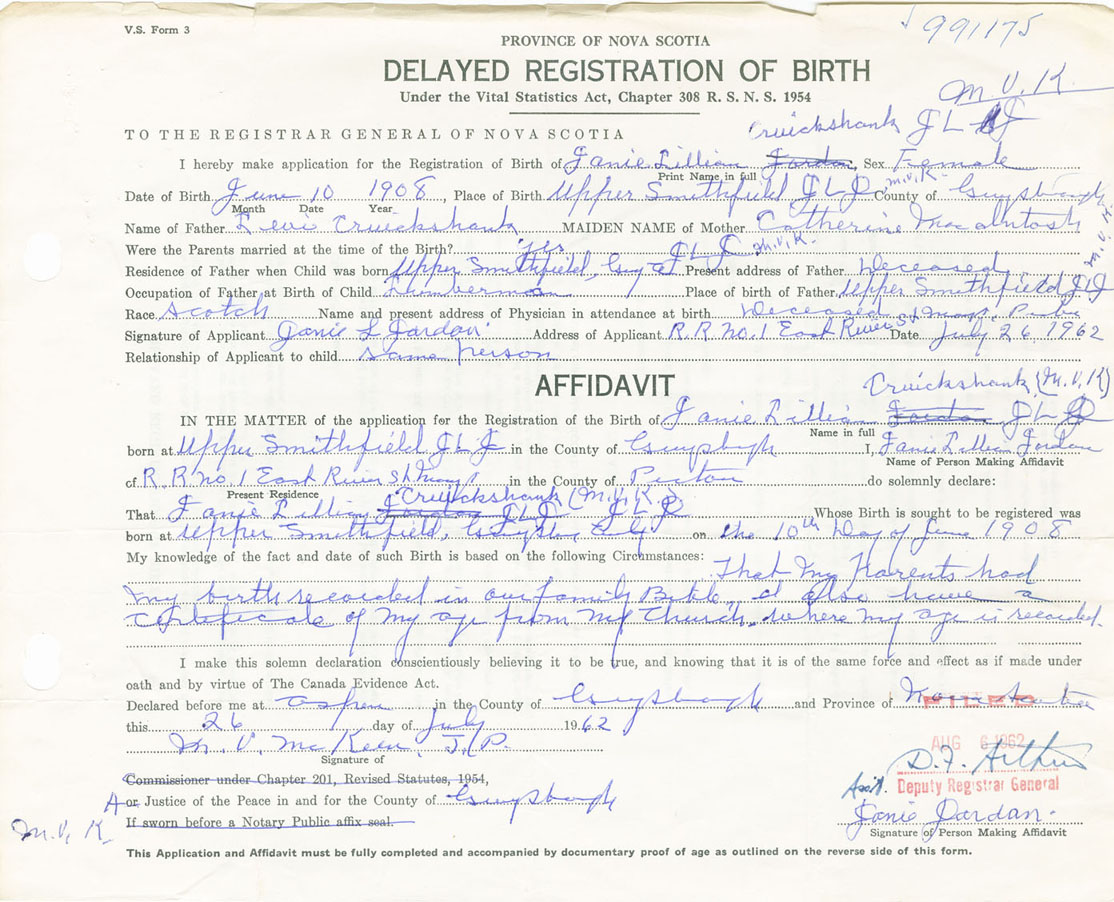 V.S. Form 3
991175
PROVINCE OF NOVA SCOTIA
DELAYED REGISTRATION OF BIRTH
M. V. K.
Under the Vital Statistics Act, Chapter 308 R. S. N. S. 1954
Cruickshank J L J
TO THE REGISTRAR GENERAL OF NOVA SCOTIA
I hereby make application for the Registration of Birth of Janie Lillian Jordan, Sex Female
Print Name in full
Date of Birth June 10 1908, Place of Birth Upper Smithfield J L J M.V.K. County of Guysborough
Month Date Year
Name of Father Levi Cruickshank MAIDEN NAME of Mother Catherine MacIntosh
Were the Parents married at the time of the Birth? yes J L J M.V.K.
M.V.K.
Residence of Father when Child was born Upper Smithfield, Guy Present address of Father Deceased
Occupation of Father at Birth of Child Lumberman Place of birth of Father Upper Smithfield J L J
Race Scotch Name and present address of Physician in attendance at birth Deceased
Signature of Applicant Janie L Jordan Address of Applicant R. R. No. 1 East River St Marys Date July 26 1962
Relationship of Applicant to child same person
AFFIDAVIT
Cruickshank (M.V.K)
IN THE MATTER of the application for the Registration of the Birth of Janie Lillian Jordan J L J
Name in full
born at Upper Smithfield J L J in the County of Guysborough I, Janie Lillian Jordan
Name of Person Making Affidavit
of R. R. No. 1 East River St Marys in the County of Pictou do solemnly declare:
Present Residence
Cruickshank (M.V.K.)
That Janie Lillian Jordan J L J J L J Whose Birth is sought to be registered was
born at Upper Smithfield, on the 10th Day of June 1908
My knowledge of the fact and date of such Birth is based on the following Circumstances:
That My Parents had
my birth recorded in our family Bible, I also have a
certificate of my age from my Church, where my age is recorded.
I make this solemn declaration conscientiously believing it to be true, and knowing that it is of the same force and effect as if made under
oath and by virtue of The Canada Evidence Act.
Declared before me at Aspen in the County of Guysborough and Province of Nova Scotia
FILED
this 26 day of July 1962
M. V. McKeen J. P.
AUG 6 1962
Signature of
D. F. Arthur
Commissioner under Chapter 201, Revised Statutes, 1954,
Ass't. Deputy Registrar General
A or Justice of the Peace in and for the County of Guysborough
Janie Jordan
M. V. K
If sworn before a Notary Public affix seal.
Signature of Person Making Affidavit
This Application and Affidavit must be fully completed and accompanied by documentary proof of age as outlined on the reverse side of this form.